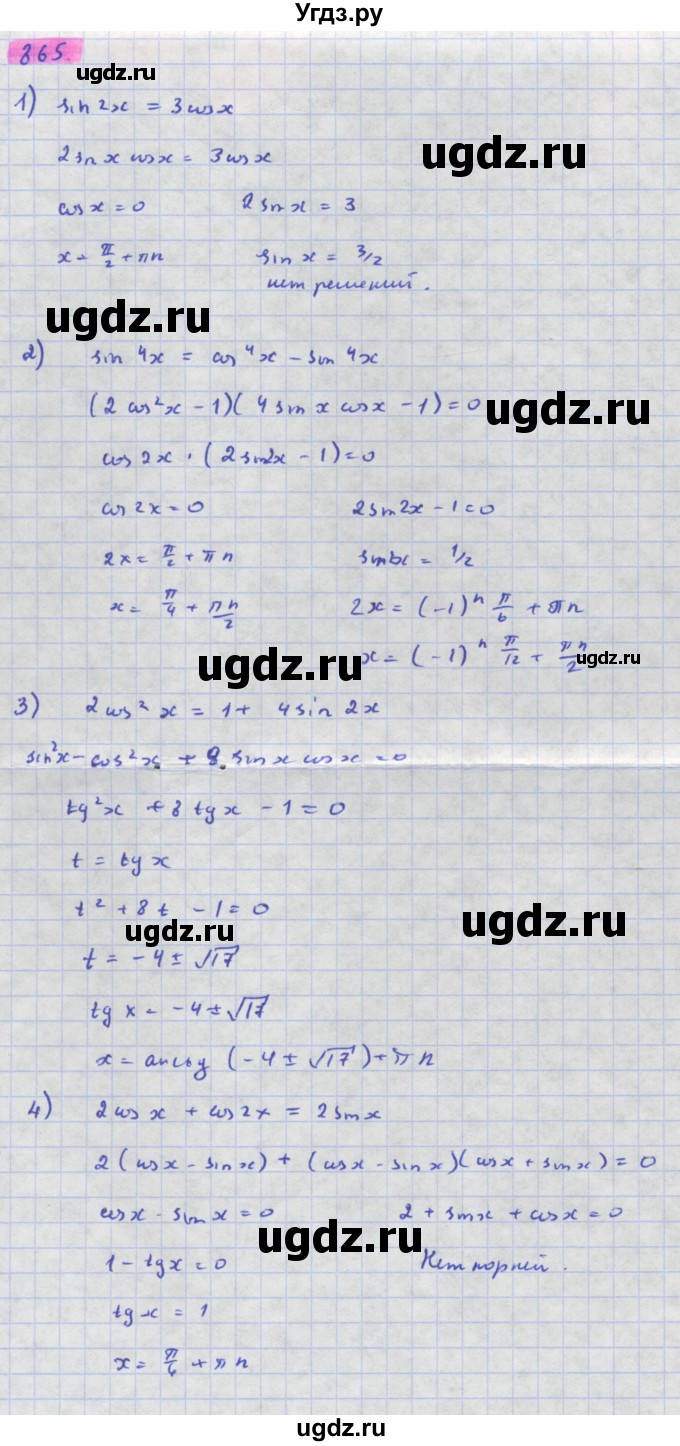 Угдз.ру
865.
ugdz.ru
1) sin 2x = 3 cos x
ugdz.ru
2 sin x cos x = 3 cos x
cos x = 0   2 sin x = 3
x = π/2 + πn   sin x = 3/2
нет решений.
ugdz.ru
2) sin 4x = cos⁴x − sin⁴x
(2 cos²x − 1)(4 sin x cos x − 1) = 0
ugdz.ru
cos 2x · (2 sin2x − 1) = 0
cos 2x = 0   2 sin 2x − 1 = 0
2x = π/2 + πn   sin 2x = 1/2
x = π/4 + πn/2   2x = (−1)ⁿ π/6 + πn
ugdz.ru
x = (−1)ⁿ π/12 + πn/2
ugdz.ru
3) 2 cos² x = 1 + 4 sin 2x
sin²x − cos²x + 8 sin x cos x = 0
tg²x + 8 tg x − 1 = 0
t = tg x
t² + 8t − 1 = 0
ugdz.ru
ugdz.ru
t = −4 ± √17
tg x = −4 ± √17
x = arctg (−4 ± √17) + πn
4) 2 cos x + cos 2x = 2 sin x
2 (cos x − sin x) + (cos x − sin x)(cos x + sin x) = 0
cos x − sin x = 0   2 + sin x + cos x = 0
ugdz.ru
1 − tg x = 0   Нет корней.
tg x = 1
x = π/4 + πn
ugdz.ru